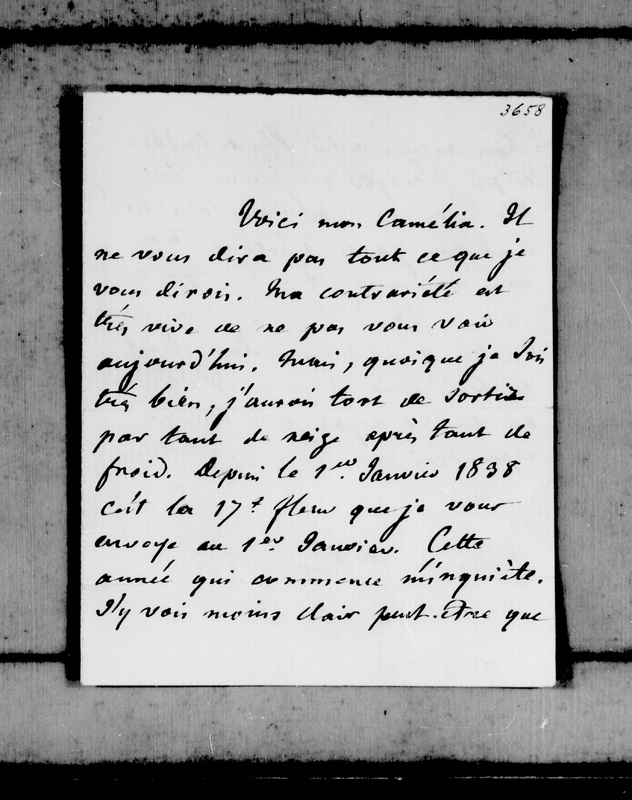 3658
Voici mon Camélia. Il
ne vous dira pas tout ce que je
vous dirois. Ma contrariété est
très vive de ne pas vous voir
aujourd'hui. Mais, quoique je sois
très bien, j'aurois tort de sortir
par tant de neige après tant de
froid. Depuis le 1er. Janvier 1838
c'est la 17e fleur que je vous
envoye au 1er. Janvier. Cette
année qui commence m'inquiète.
J'y vois moins clair peut-être que